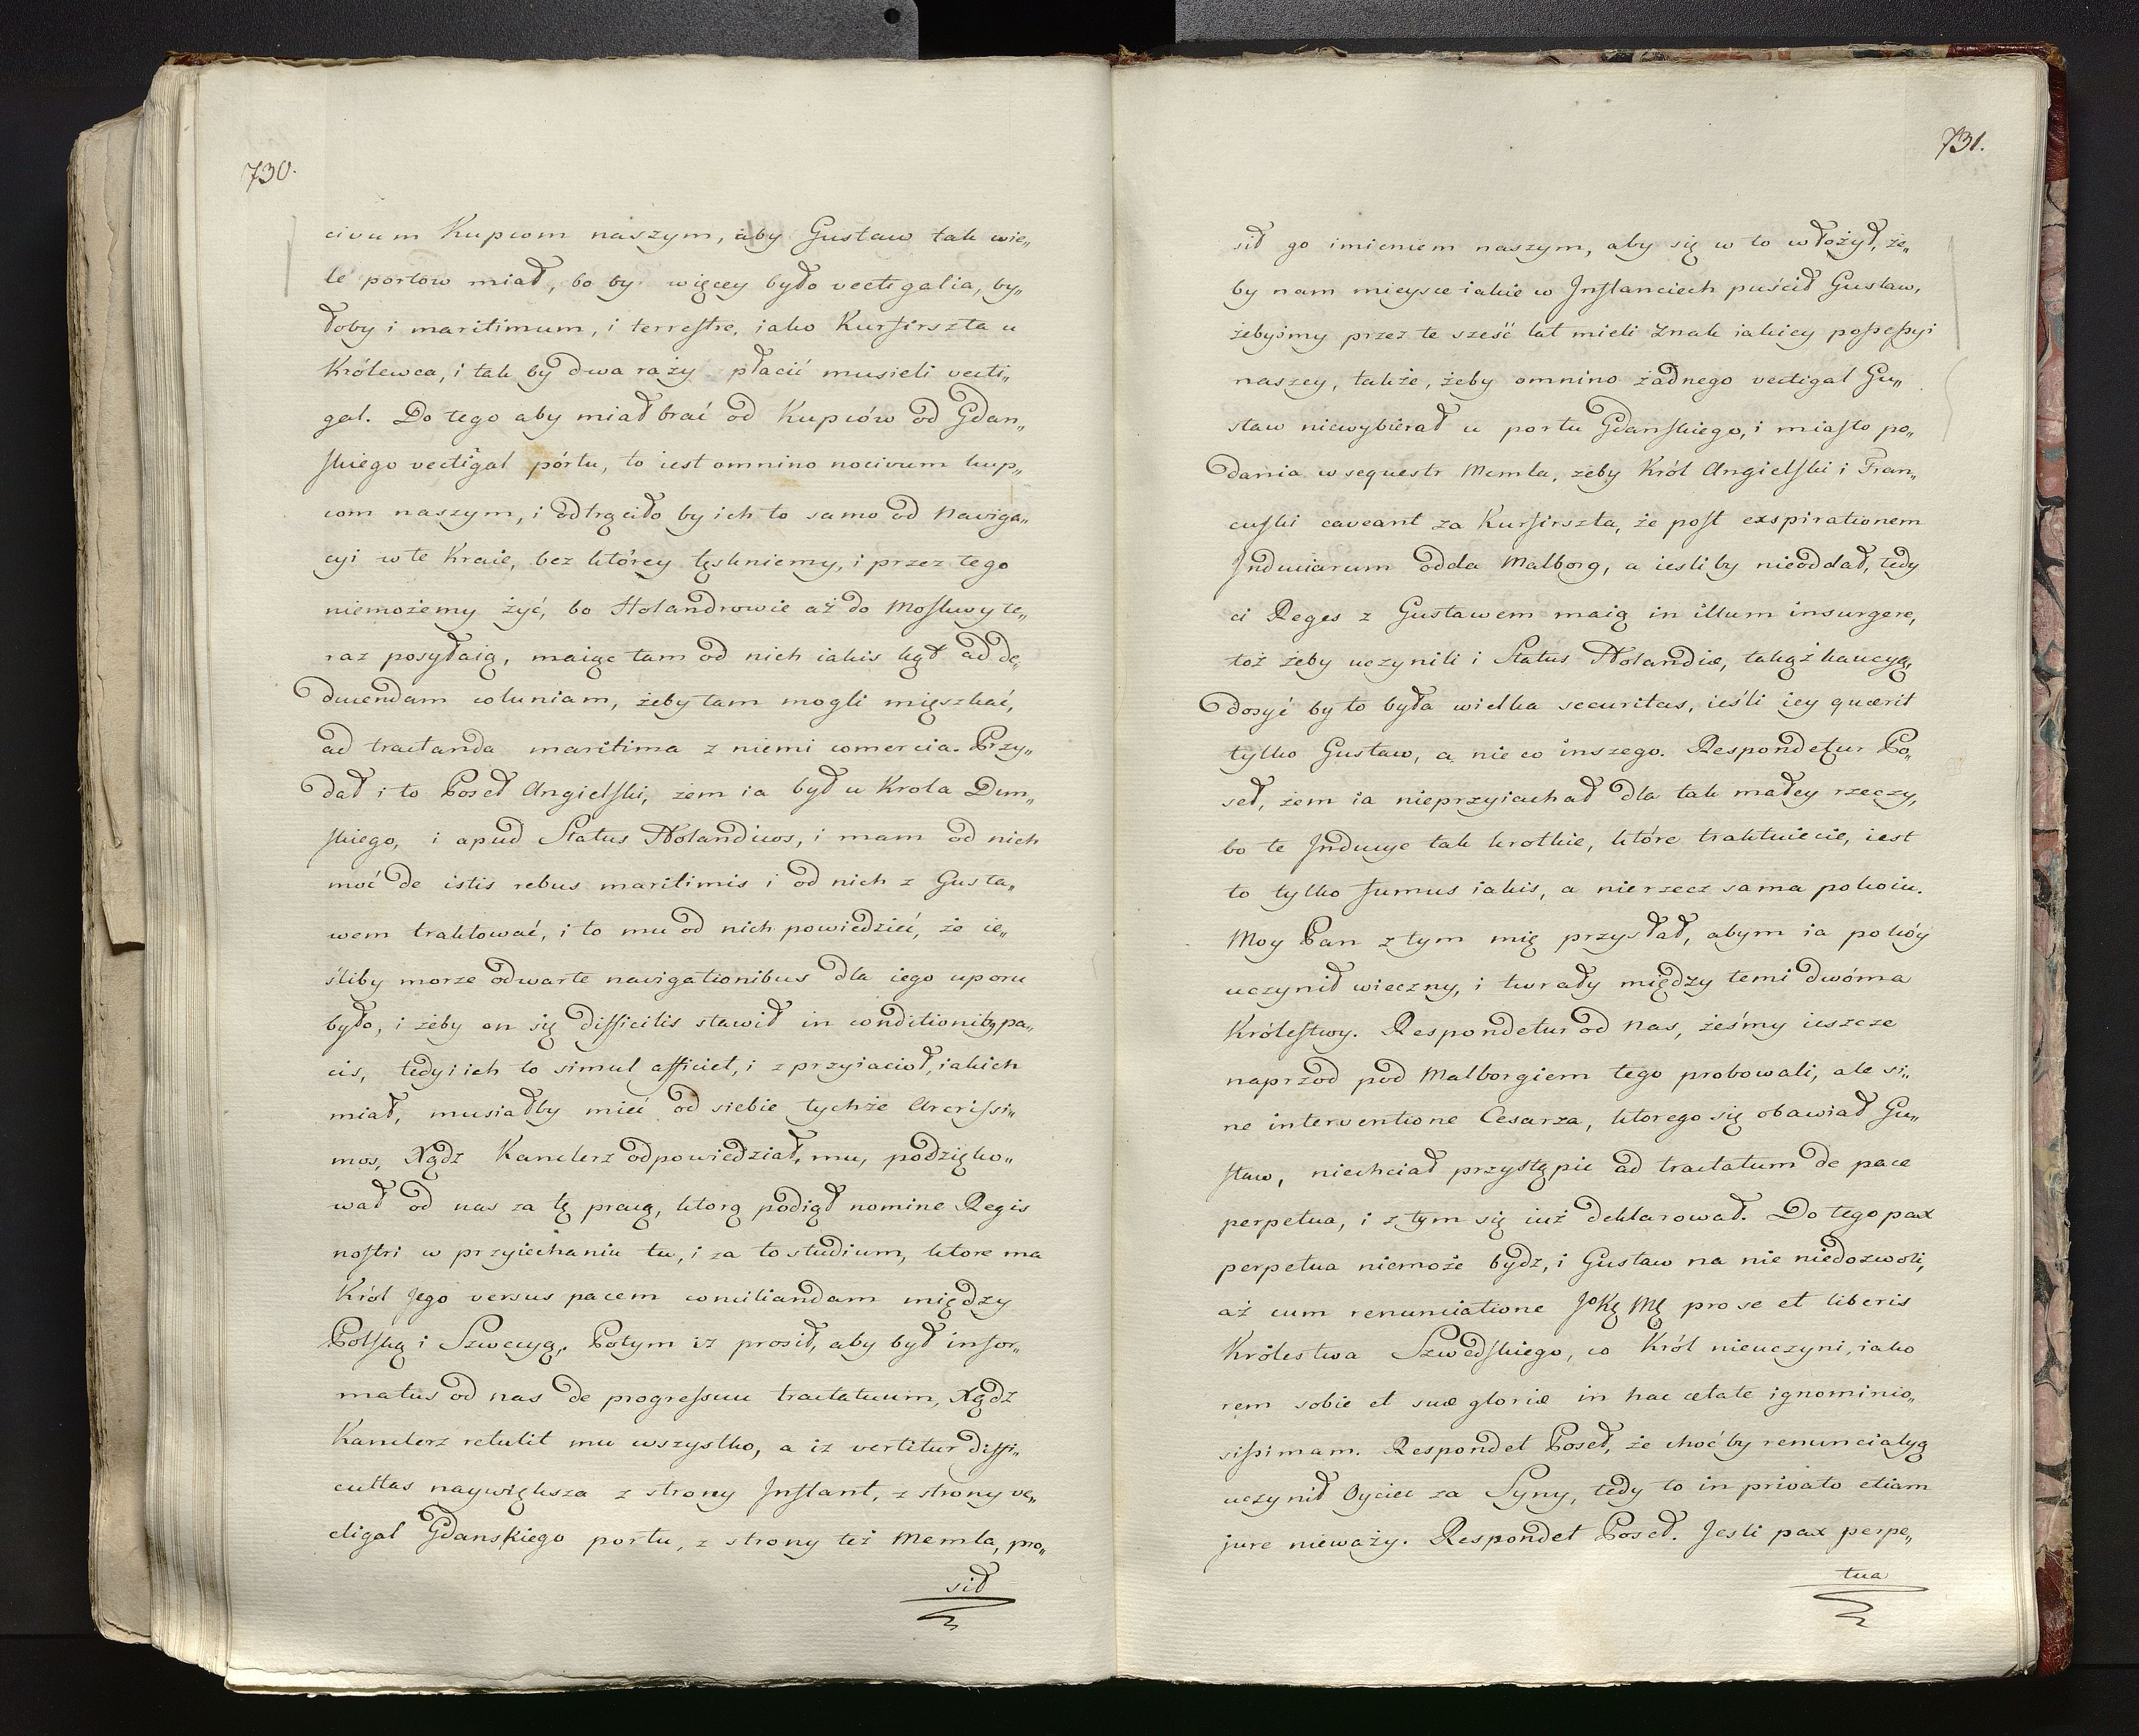 730.
civum Kupcom naszym, aby Gustaw tak wie„
le portow miał, bo by więcey było vectigalia, by„
łoby i maritimum, i terrestre, iako Kurfirszta u
Królewca, i tak by dwa raży płacić musieli vecti„
gal. Do tego aby miał brać od Kupców od Gdan„
skiego vectigal pórtu, to iest omnino nocivum kup„
com naszym, i odtrąciło by ich to samo od Naviga„
cyi w te Kraie, bez którey tęskniemy, i przez tego
niemożemy żyć, bo Holandrowie aż do Moskwy te„
raz posyłaią, maiąc tam od nich iakis kąt ad de„
ducendam coluniam, żeby tam mogli mięszkać,
ad tractanda maritima z niemi comercia. Przy„
dał i to Poseł Angielski, żem ia był u Krola Dun„
skiego, i apud Status Holandicos, i mam od nich
moć de istis rebus maritimis i od nich z Gusta„
wem traktować, i to mu od nich powiedzieć, że ie„
śliby morze odwarte navigationibus dla iego uporu
było, i żeby on się difficilis stawił in conditionibq pa„
cis, tedy i ich to simul afficiet, i z przyiacioł, iakich
miał, musiałby mieć od siebie tychże Acrissi„
mos, Xądz Kanclerz odpowiedział, mu, podzięko„
wał od nas za tę pracę, ktorą podiął nomine Regis
nostri w przyiechaniu tu, i za to studium, ktore ma
Król Jego versus pacem conciliandam między
Polską i Szwecyą, Potym iż prosił, aby był infor„
matus od nas de progressuu tractatuum, Xądz
Kanclerz retulit mu wszystko, a iż vertitur diffi„
cultas naywiększa z strony Inflant, z strony ve„
ctigal Gdanskiego portu, z strony też Memla, pro„
sił
731.
sił go imieniem naszym, aby się w to włożył, że„
by nam mieysce iakie w Inflanciech puścił Gustaw,
żebyśmy przez te sześć lat mieli znak iakiey possessyi
naszey, także, żeby omnino żadnego vectigal Gu„
staw niewybierał u portu Gdanskiego, i miasto po„
dania w sequestr Memla, żeby Król Angielski i Fran„
cuski caveant za Kurfirszta, że post exspirationem
Induciarum odda Malborg, a iesliby nieoddał, tedy
ci Reges z Gustawem maią in illum insurgere,
toż żeby uczynili i Status Holandiæ, takąż kaucyą,
dosyć by to była wielka securitas, ieśli iey quærit
tylko Gustaw, a nie co inszego. Respondetur Po„
seł, żem ia nieprzyiachał dla tak małey rzeczy,
bo te Inducye tak krotkie, które traktuiecie, iest
to tylko fumus iakis, a nie rzecz sama pokoiu.
Moy Pan z tym mię przysłał, abym ia pokóy
uczynił wieczny, i twrały między temi dwóma
Królestwy. Respondetur od nas, żeśmy ieszcze
naprzod pod Malborgiem tego probowali, ale si„
ne interventione Cesarza, ktorego się obawiał Gu„
staw, niechciał przystępic ad tractatum de pace
perpetua, i z tym się iuż deklarował. Do tego pax
perpetua niemoże bydz, i Gustaw na nie niedozwoli,
aż cum renunciatione JoKę Mę pro se et liberis
Królestwa Szwedskiego, co Król nieuczyni, iako
rem sobie et suæ gloriæ in hac ætate ignominio„
sissimam. Respondet Poseł, że choć by renunciatyą
uczynił Oyciec za Syny, tedy to in privato etiam
jure nieważy. Respondet Poseł. Jesli pax perpe„
tua